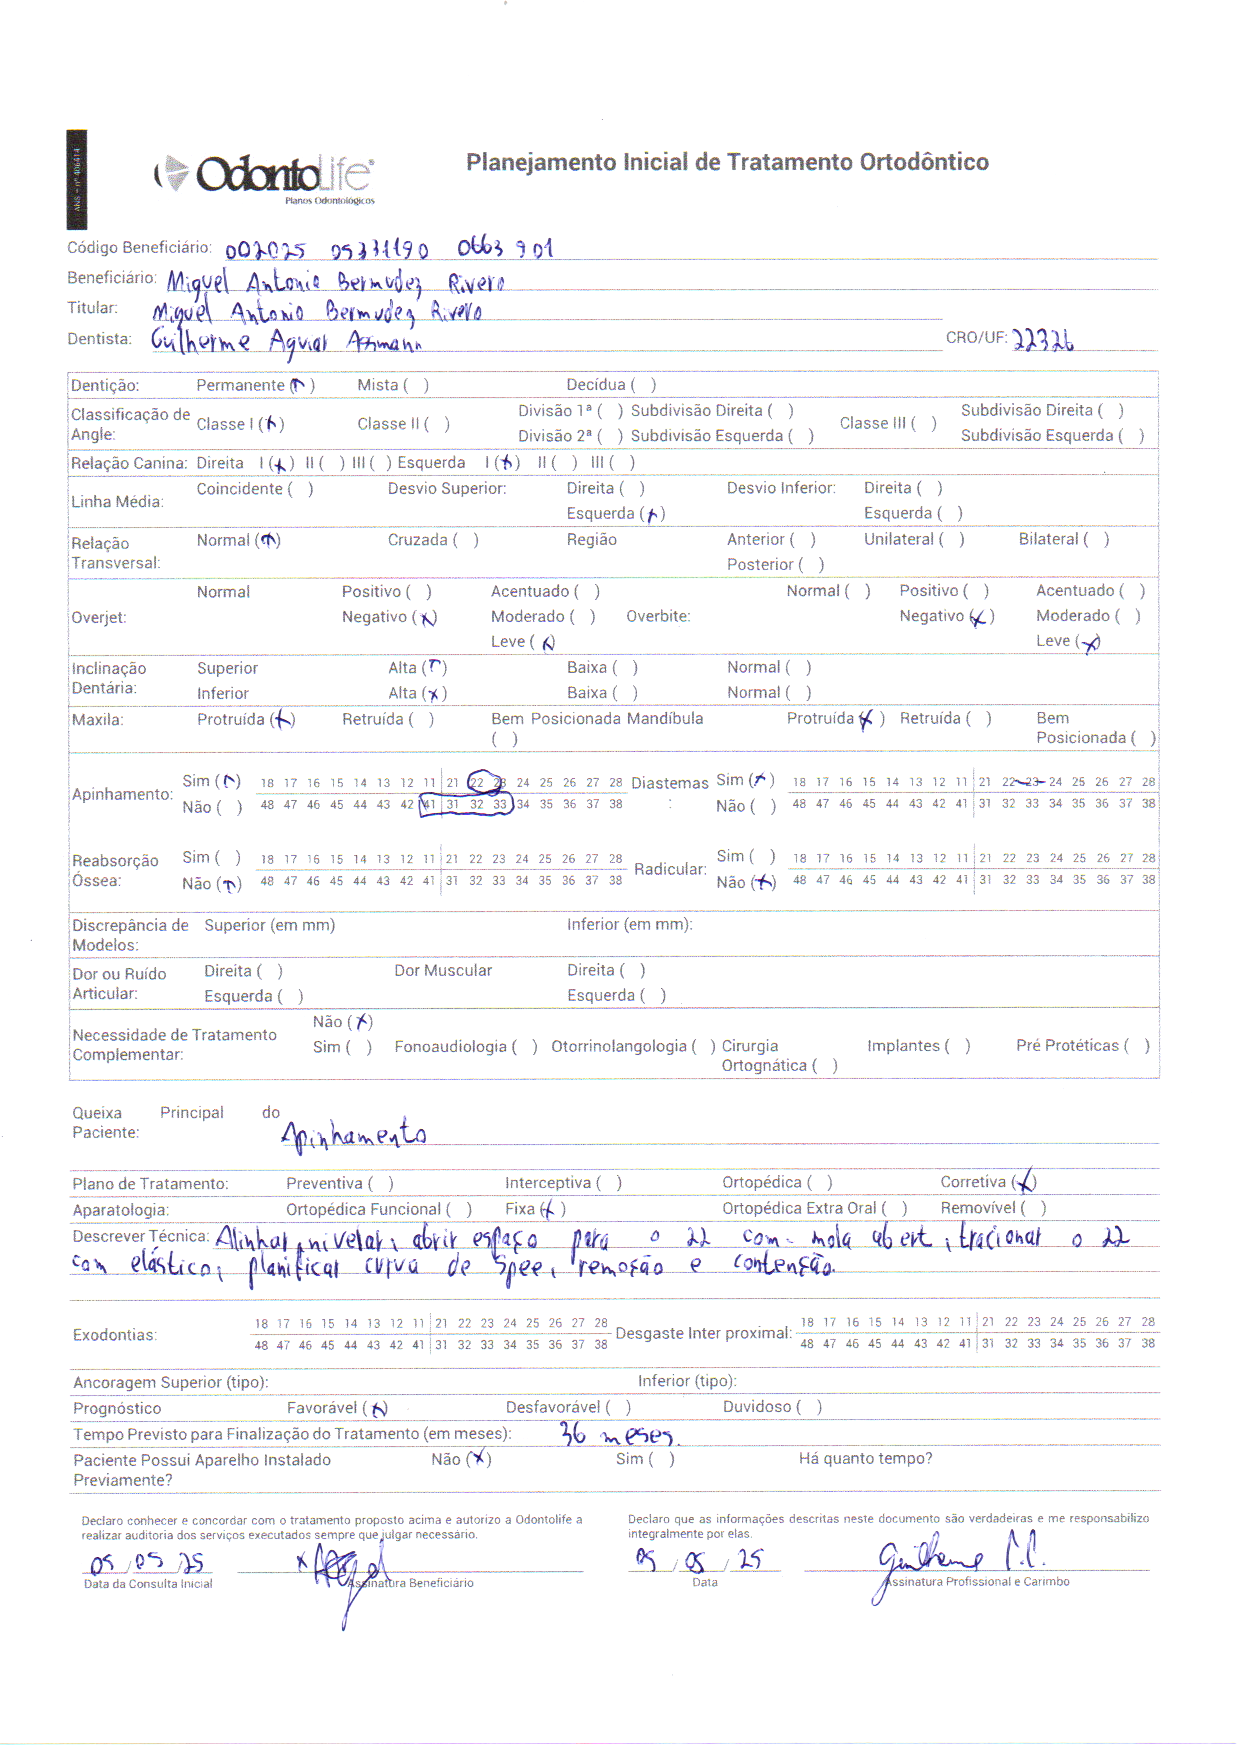 ANS - nº 406414
OdontoLife®
Planos Odontológicos
Planejamento Inicial de Tratamento Ortodôntico
Código Beneficiário: 002025 05331190 0663 901
Beneficiário: Miguel Antonio Bermudez Rivero
Titular: Miguel Antonio Bermudez Rivero
Dentista: Guilherme Aguiar Assmann CRO/UF: 22326
Dentição: Permanente (x) Mista ( ) Decídua ( )
Classificação de Angle: Classe I (x) Classe II ( ) Divisão 1ª ( ) Subdivisão Direita ( ) Classe III ( ) Subdivisão Direita ( )
Divisão 2ª ( ) Subdivisão Esquerda ( ) Subdivisão Esquerda ( )
Relação Canina: Direita I (x) II ( ) III ( ) Esquerda I (x) II ( ) III ( )
Linha Média: Coincidente ( ) Desvio Superior: Direita ( ) Desvio Inferior: Direita ( )
Esquerda (x) Esquerda ( )
Relação Transversal: Normal (x) Cruzada ( ) Região Anterior ( ) Unilateral ( ) Bilateral ( )
Posterior ( )
Overjet: Normal Positivo ( ) Acentuado ( ) Overbite: Normal ( ) Positivo ( ) Acentuado ( )
Negativo (x) Moderado ( ) Negativo (x) Moderado ( )
Leve (x) Leve (x)
Inclinação Dentária: Superior Alta (x) Baixa ( ) Normal ( )
Inferior Alta (x) Baixa ( ) Normal ( )
Maxila: Protruída (x) Retruída ( ) Bem Posicionada ( ) Mandíbula Protruída (x) Retruída ( ) Bem Posicionada ( )
Apinhamento: Sim (x) 18 17 16 15 14 13 12 11 21 22 23 24 25 26 27 28 Diastemas: Sim (x) 18 17 16 15 14 13 12 11 21 22 23 24 25 26 27 28
Não ( ) 48 47 46 45 44 43 42 41 31 32 33 34 35 36 37 38 Não ( ) 48 47 46 45 44 43 42 41 31 32 33 34 35 36 37 38
Reabsorção Óssea: Sim ( ) 18 17 16 15 14 13 12 11 21 22 23 24 25 26 27 28 Radicular: Sim ( ) 18 17 16 15 14 13 12 11 21 22 23 24 25 26 27 28
Não (x) 48 47 46 45 44 43 42 41 31 32 33 34 35 36 37 38 Não (x) 48 47 46 45 44 43 42 41 31 32 33 34 35 36 37 38
Discrepância de Modelos: Superior (em mm) Inferior (em mm):
Dor ou Ruído Articular: Direita ( ) Dor Muscular Direita ( )
Esquerda ( ) Esquerda ( )
Necessidade de Tratamento Complementar: Não (x)
Sim ( ) Fonoaudiologia ( ) Otorrinolangologia ( ) Cirurgia Ortognática ( ) Implantes ( ) Pré Protéticas ( )
Queixa Principal do Paciente: Apinhamento
Plano de Tratamento: Preventiva ( ) Interceptiva ( ) Ortopédica ( ) Corretiva (x)
Aparatologia: Ortopédica Funcional ( ) Fixa (x) Ortopédica Extra Oral ( ) Removível ( )
Descrever Técnica: Alinhar, nivelar, abrir espaço para o 22 com mola abert, tracionar o 22
com elástico, planificar curva de Spee, remoção e contenção.
Exodontias: 18 17 16 15 14 13 12 11 21 22 23 24 25 26 27 28 Desgaste Inter proximal: 18 17 16 15 14 13 12 11 21 22 23 24 25 26 27 28
48 47 46 45 44 43 42 41 31 32 33 34 35 36 37 38 48 47 46 45 44 43 42 41 31 32 33 34 35 36 37 38
Ancoragem Superior (tipo): Inferior (tipo):
Prognóstico Favorável (x) Desfavorável ( ) Duvidoso ( )
Tempo Previsto para Finalização do Tratamento (em meses): 36 meses.
Paciente Possui Aparelho Instalado Previamente? Não (x) Sim ( ) Há quanto tempo?
Declaro conhecer e concordar com o tratamento proposto acima e autorizo a Odontolife a
realizar auditoria dos serviços executados sempre que julgar necessário.
Declaro que as informações descritas neste documento são verdadeiras e me responsabilizo
integralmente por elas.
05/05/25 05/05/25 Guilherme
Data da Consulta Inicial Assinatura Beneficiário Data Assinatura Profissional e Carimbo